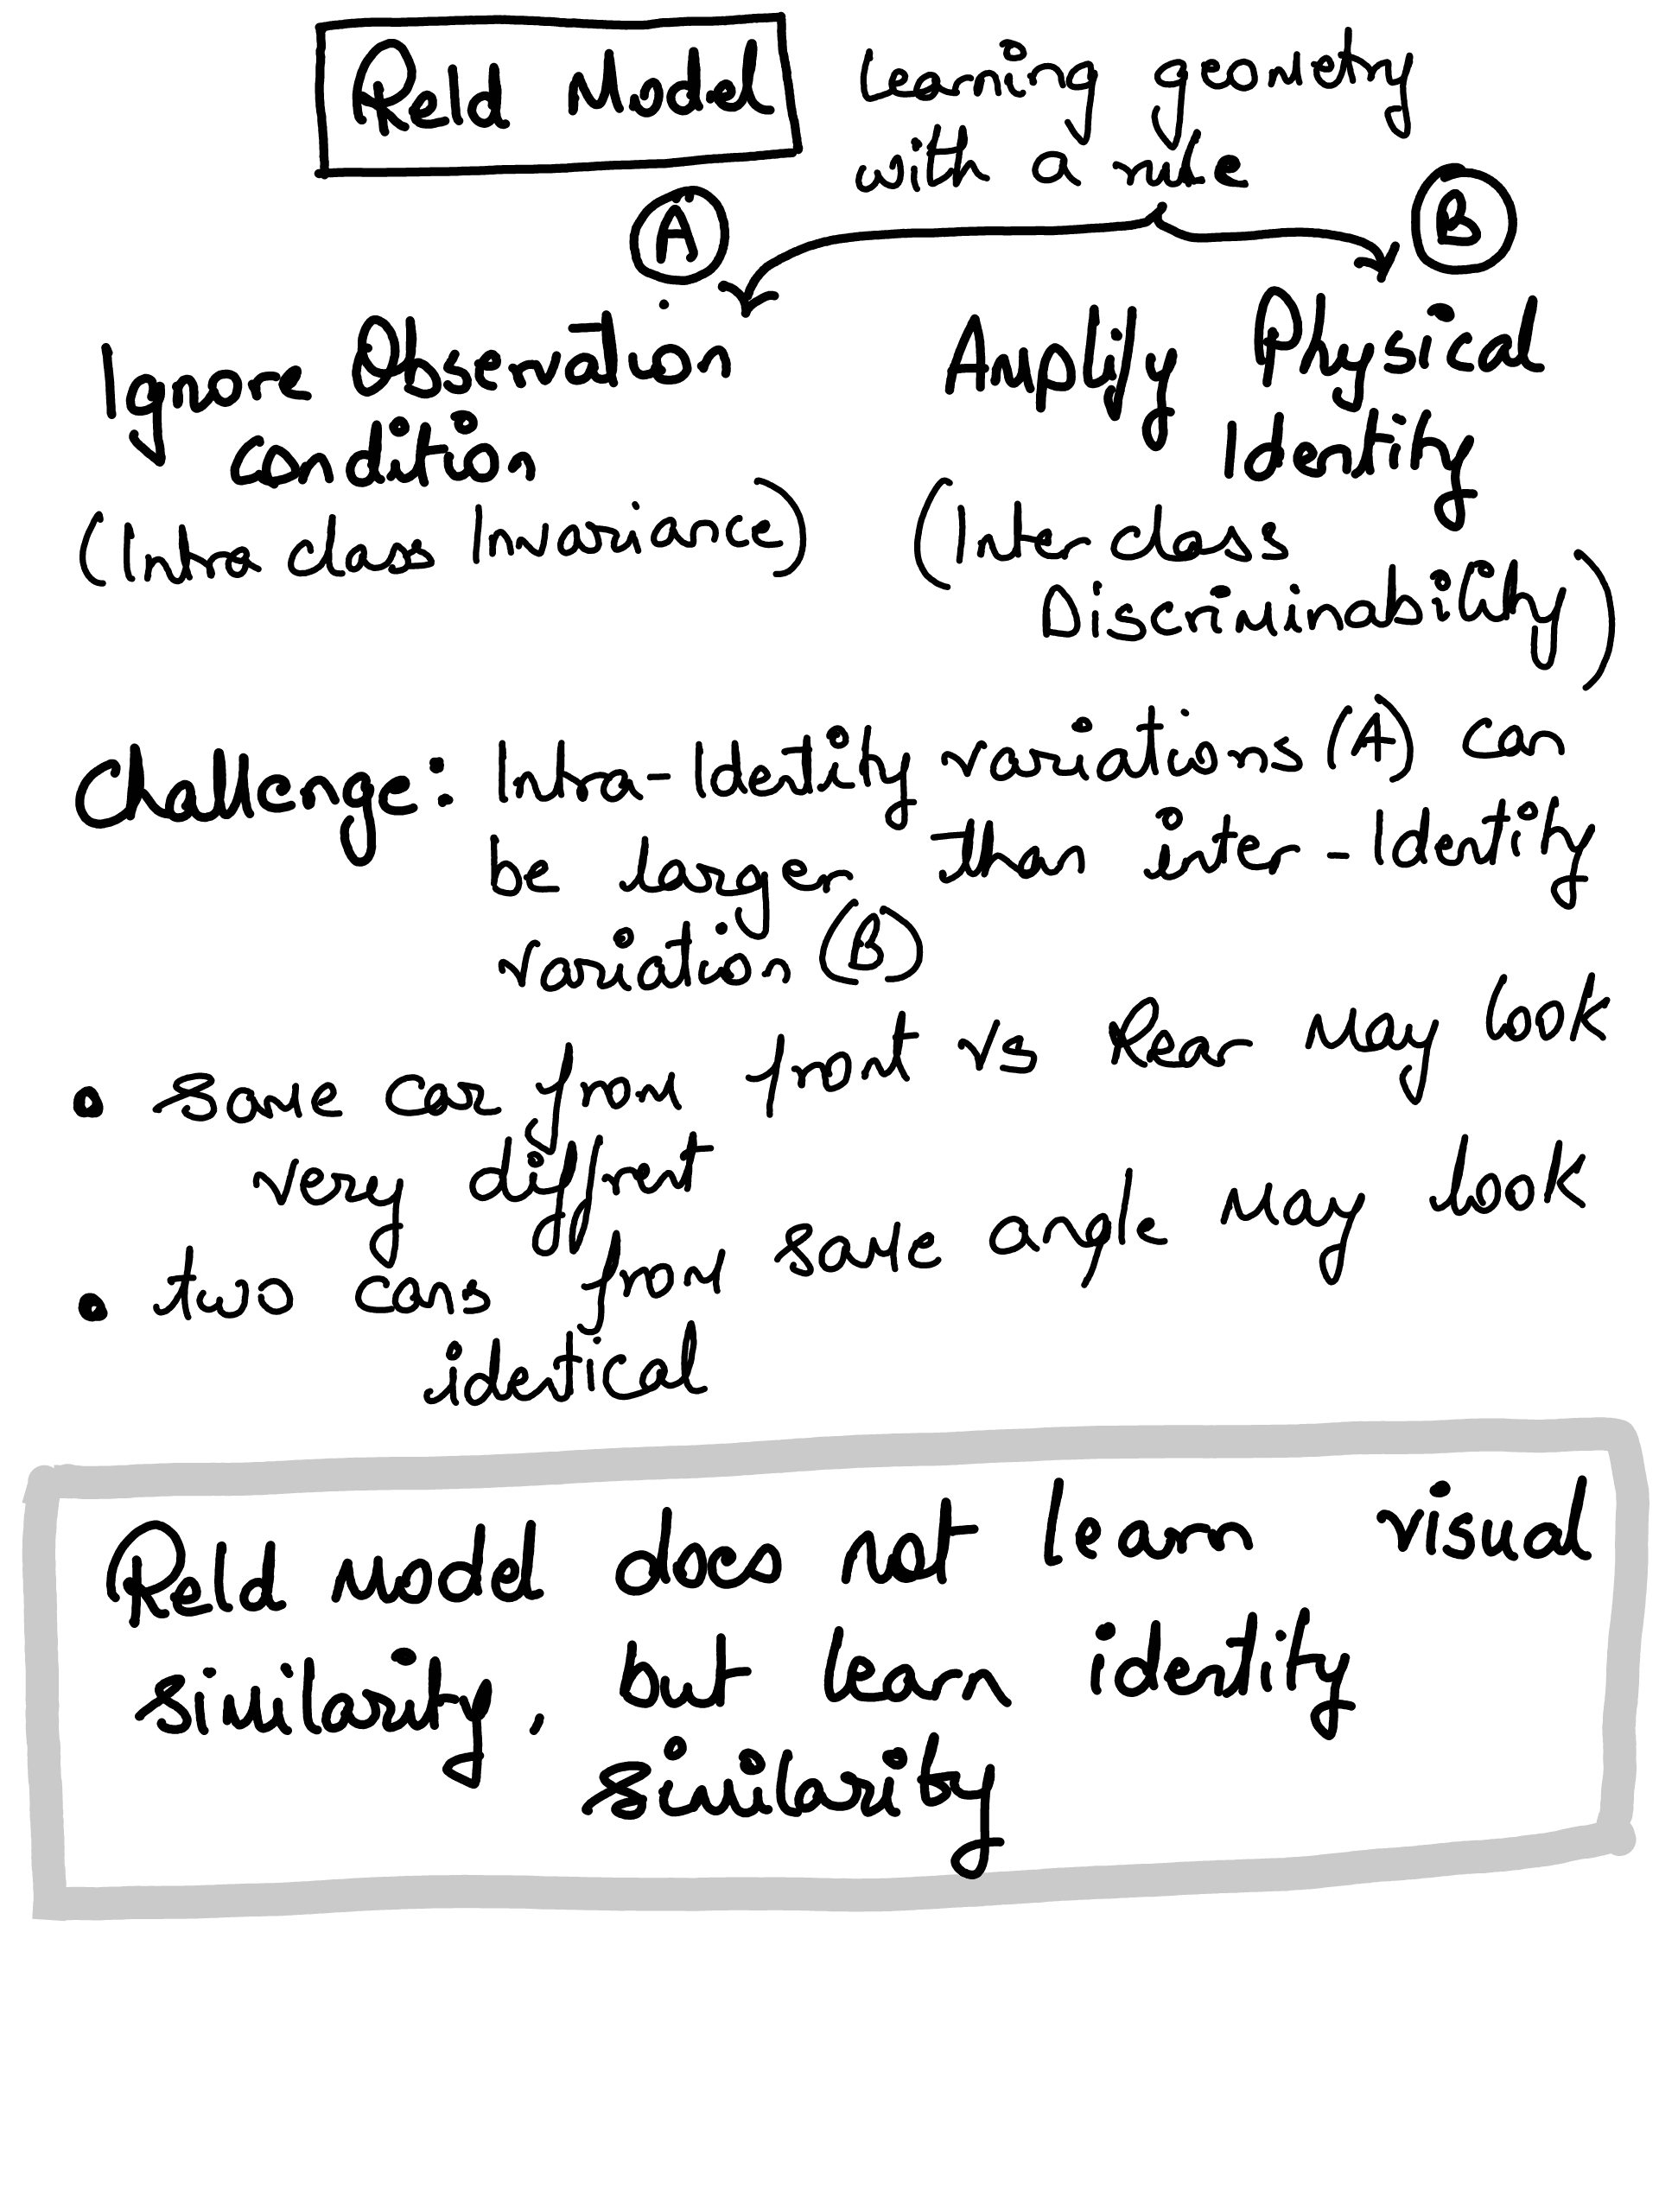 ReId Model
Learning geometry
with a rule
A
B
Ignore Observation
condition
(Intra class Invariance)
Amplify Physical
Identity
(Inter class
Discriminability)
Challenge: Intra-Identity variations (A) can
be larger than inter-Identity
variation (B)
• same car from front vs Rear may look
very diffrent
• two cars from same angle may look
identical
ReId model does not learn visual
similarity, but learn identity
similarity